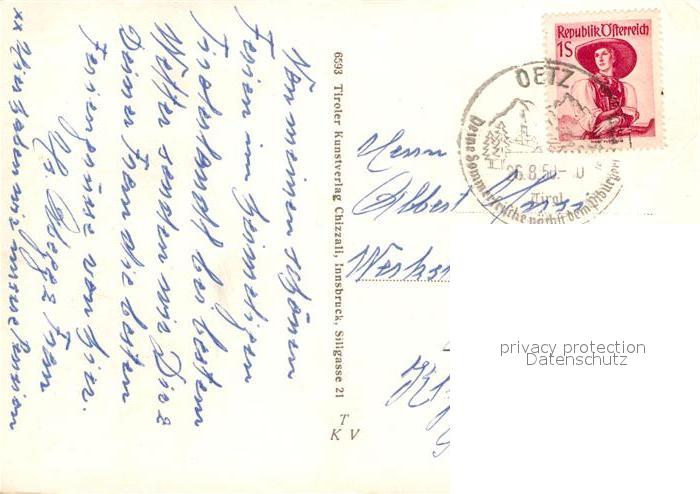 Von meinen schönen
Ferien im heimeligen
Tirolerlandl bei bestem
Wetter senden wir Dir &
Deiner Frau die besten
Feriengrüsse von hier.
Frau
xx Hier haben wir unsere Pension
6593 Tiroler Kunstverlag Chizzali, Innsbruck, Sillgasse 21
T
K V
Republik Österreich
1S
OETZ
26.8.50-10
Tirol
Deine Sommerfrische nächst dem Piburger
Herrn
Albert
privacy protection
Datenschutz